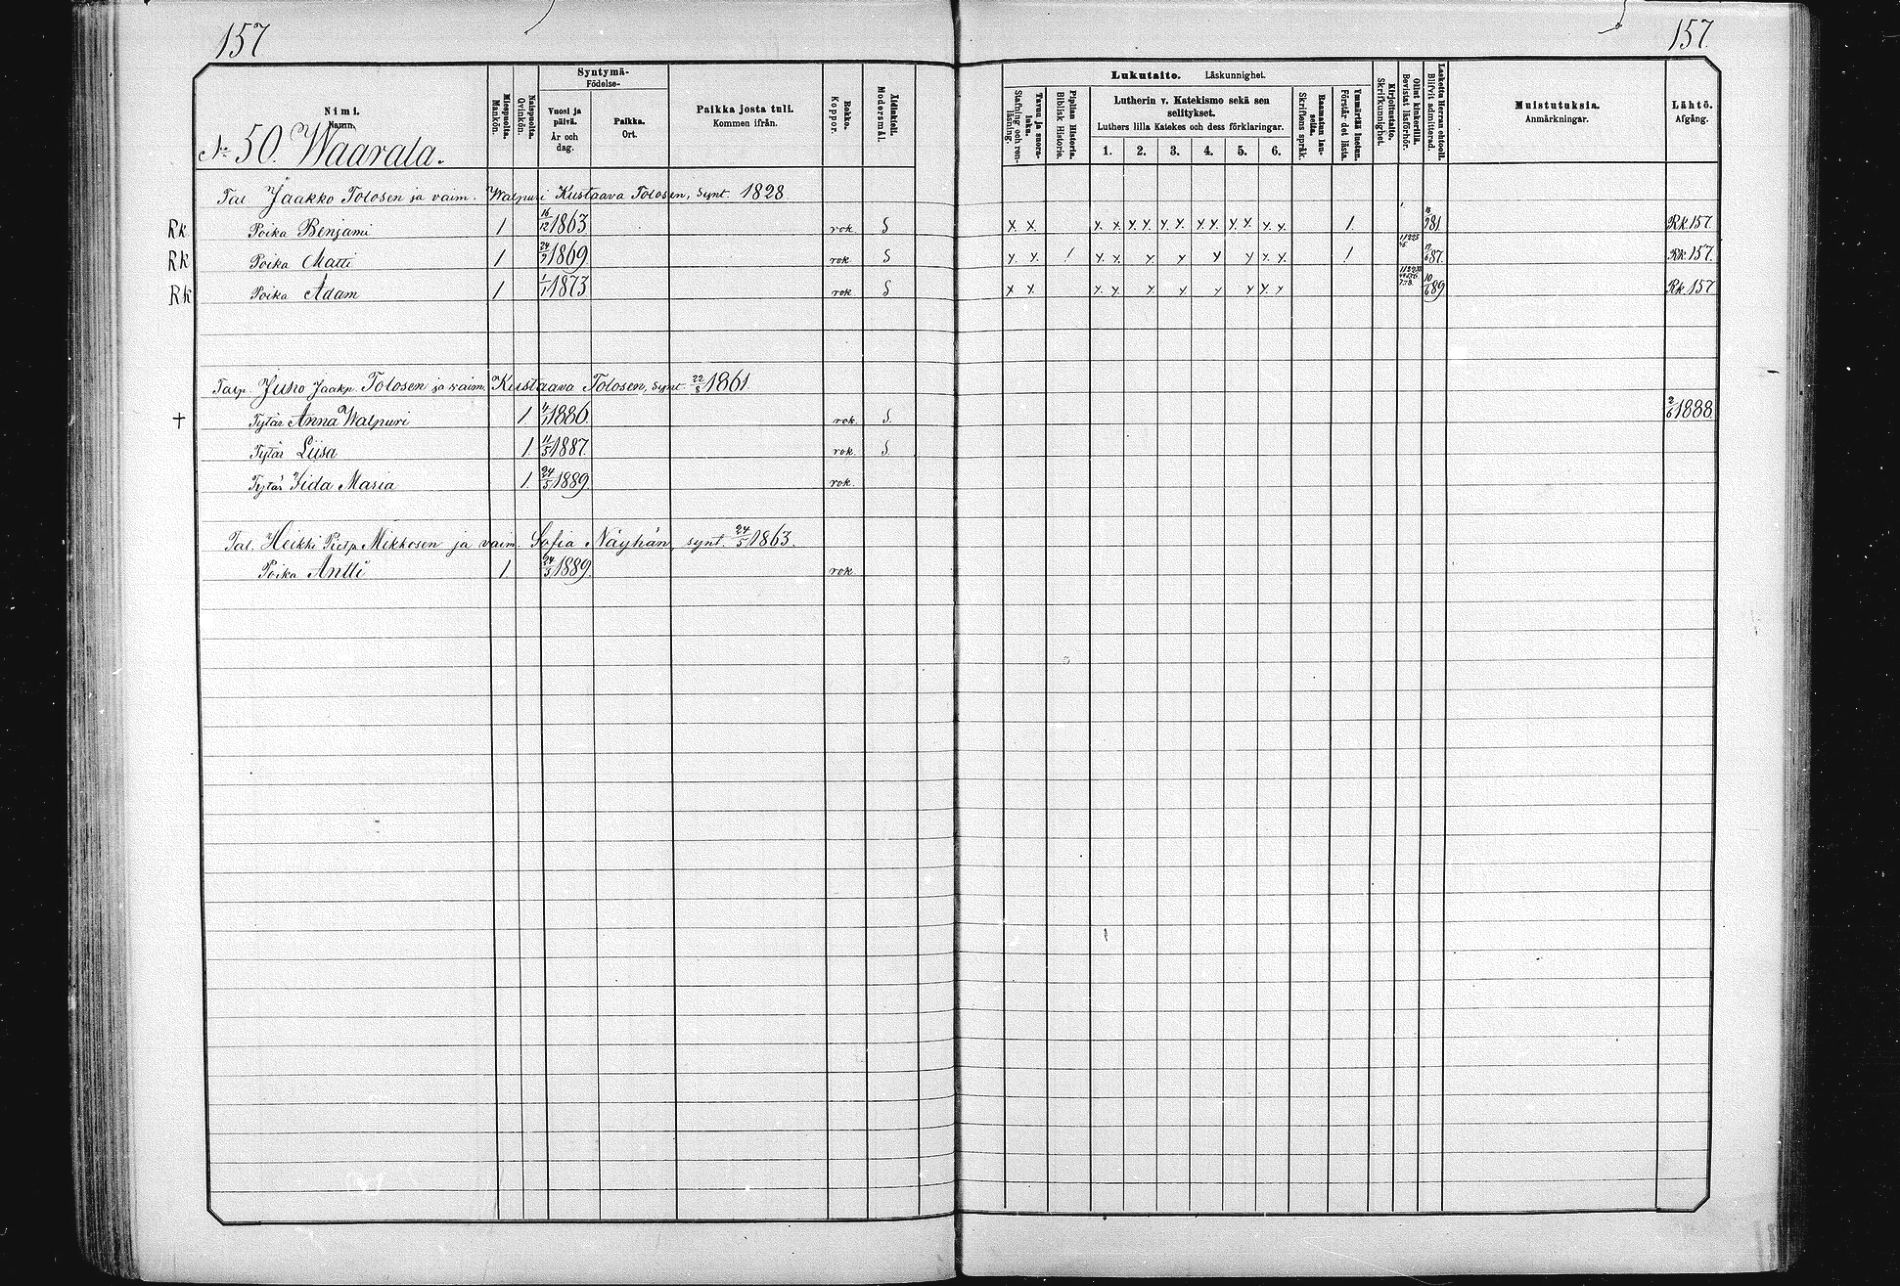 157
157.
Nimi.
Namn.
Miespuolia.
Mankön.
Naispuolia.
Qvinkön.
Syntymä-
Födelse-
Vuosi ja päivä.
År och dag.
Paikka.
Ort.
Paikka josta tuli.
Kommen ifrån.
Rokko.
Koppor.
Äidinkieli.
Modersmål.
Tavuu ja suora-luku.
Stafning och ren-läsning.
Piplian Historia.
Biblisk Historia.
Lukutaito. Läskunnighet.
Lutherin v. Katekismo sekä sen
selitykset.
Luthers lilla Katekes och dess förklaringar.
1. 2. 3. 4. 5. 6.
Raamatun lau-seita.
Skriftens språk.
Ymmärtää lueton.
Förstår det lästa.
Kirjoitustaito.
Skrifkunnighet.
Ollut kinkerillä.
Bevistat läsförhör.
Laskettu Herran ehtoool.
Blifvit admitterad.
Muistutuksia.
Anmärkningar.
Lähtö.
Afgång.
No 50. Waarala.
Tal Jaakko Tolosen ja vaim. Walpuri Kustaava Tolosen, synt. 1828.
Rk Poika Benjami 1 16/12 1863. rok. S x x. x. x. x. x. x. x. x x x. x x. x. 1. 81. Rk. 157.
Rk Poika Matti 1 24/9 1869 rok S x x. / x. x. x x x x x. x / 87. Rk 157.
Rk Poika Adam 1 1/1 1873 rok S x x. x. x x x x x x. x 10/6 89 Rk 157
Talp. Juho Jaakp. Tolosen ja vaim. Kustaava Tolosen, synt. 22/8 1861.
† Tytär Anna Walpuri 1 1886. rok. S. 2/6 1888.
Tytär Liisa 1. 11/5 1887. rok. S.
Tytär Iida Maria 1. 24/5 1889. rok.
Tal. Heikki Pietp. Mikkosen ja vaim. Sofia Näyhän, synt. 24/5 1863.
Poika Antti 1. 24/3 1889. rok